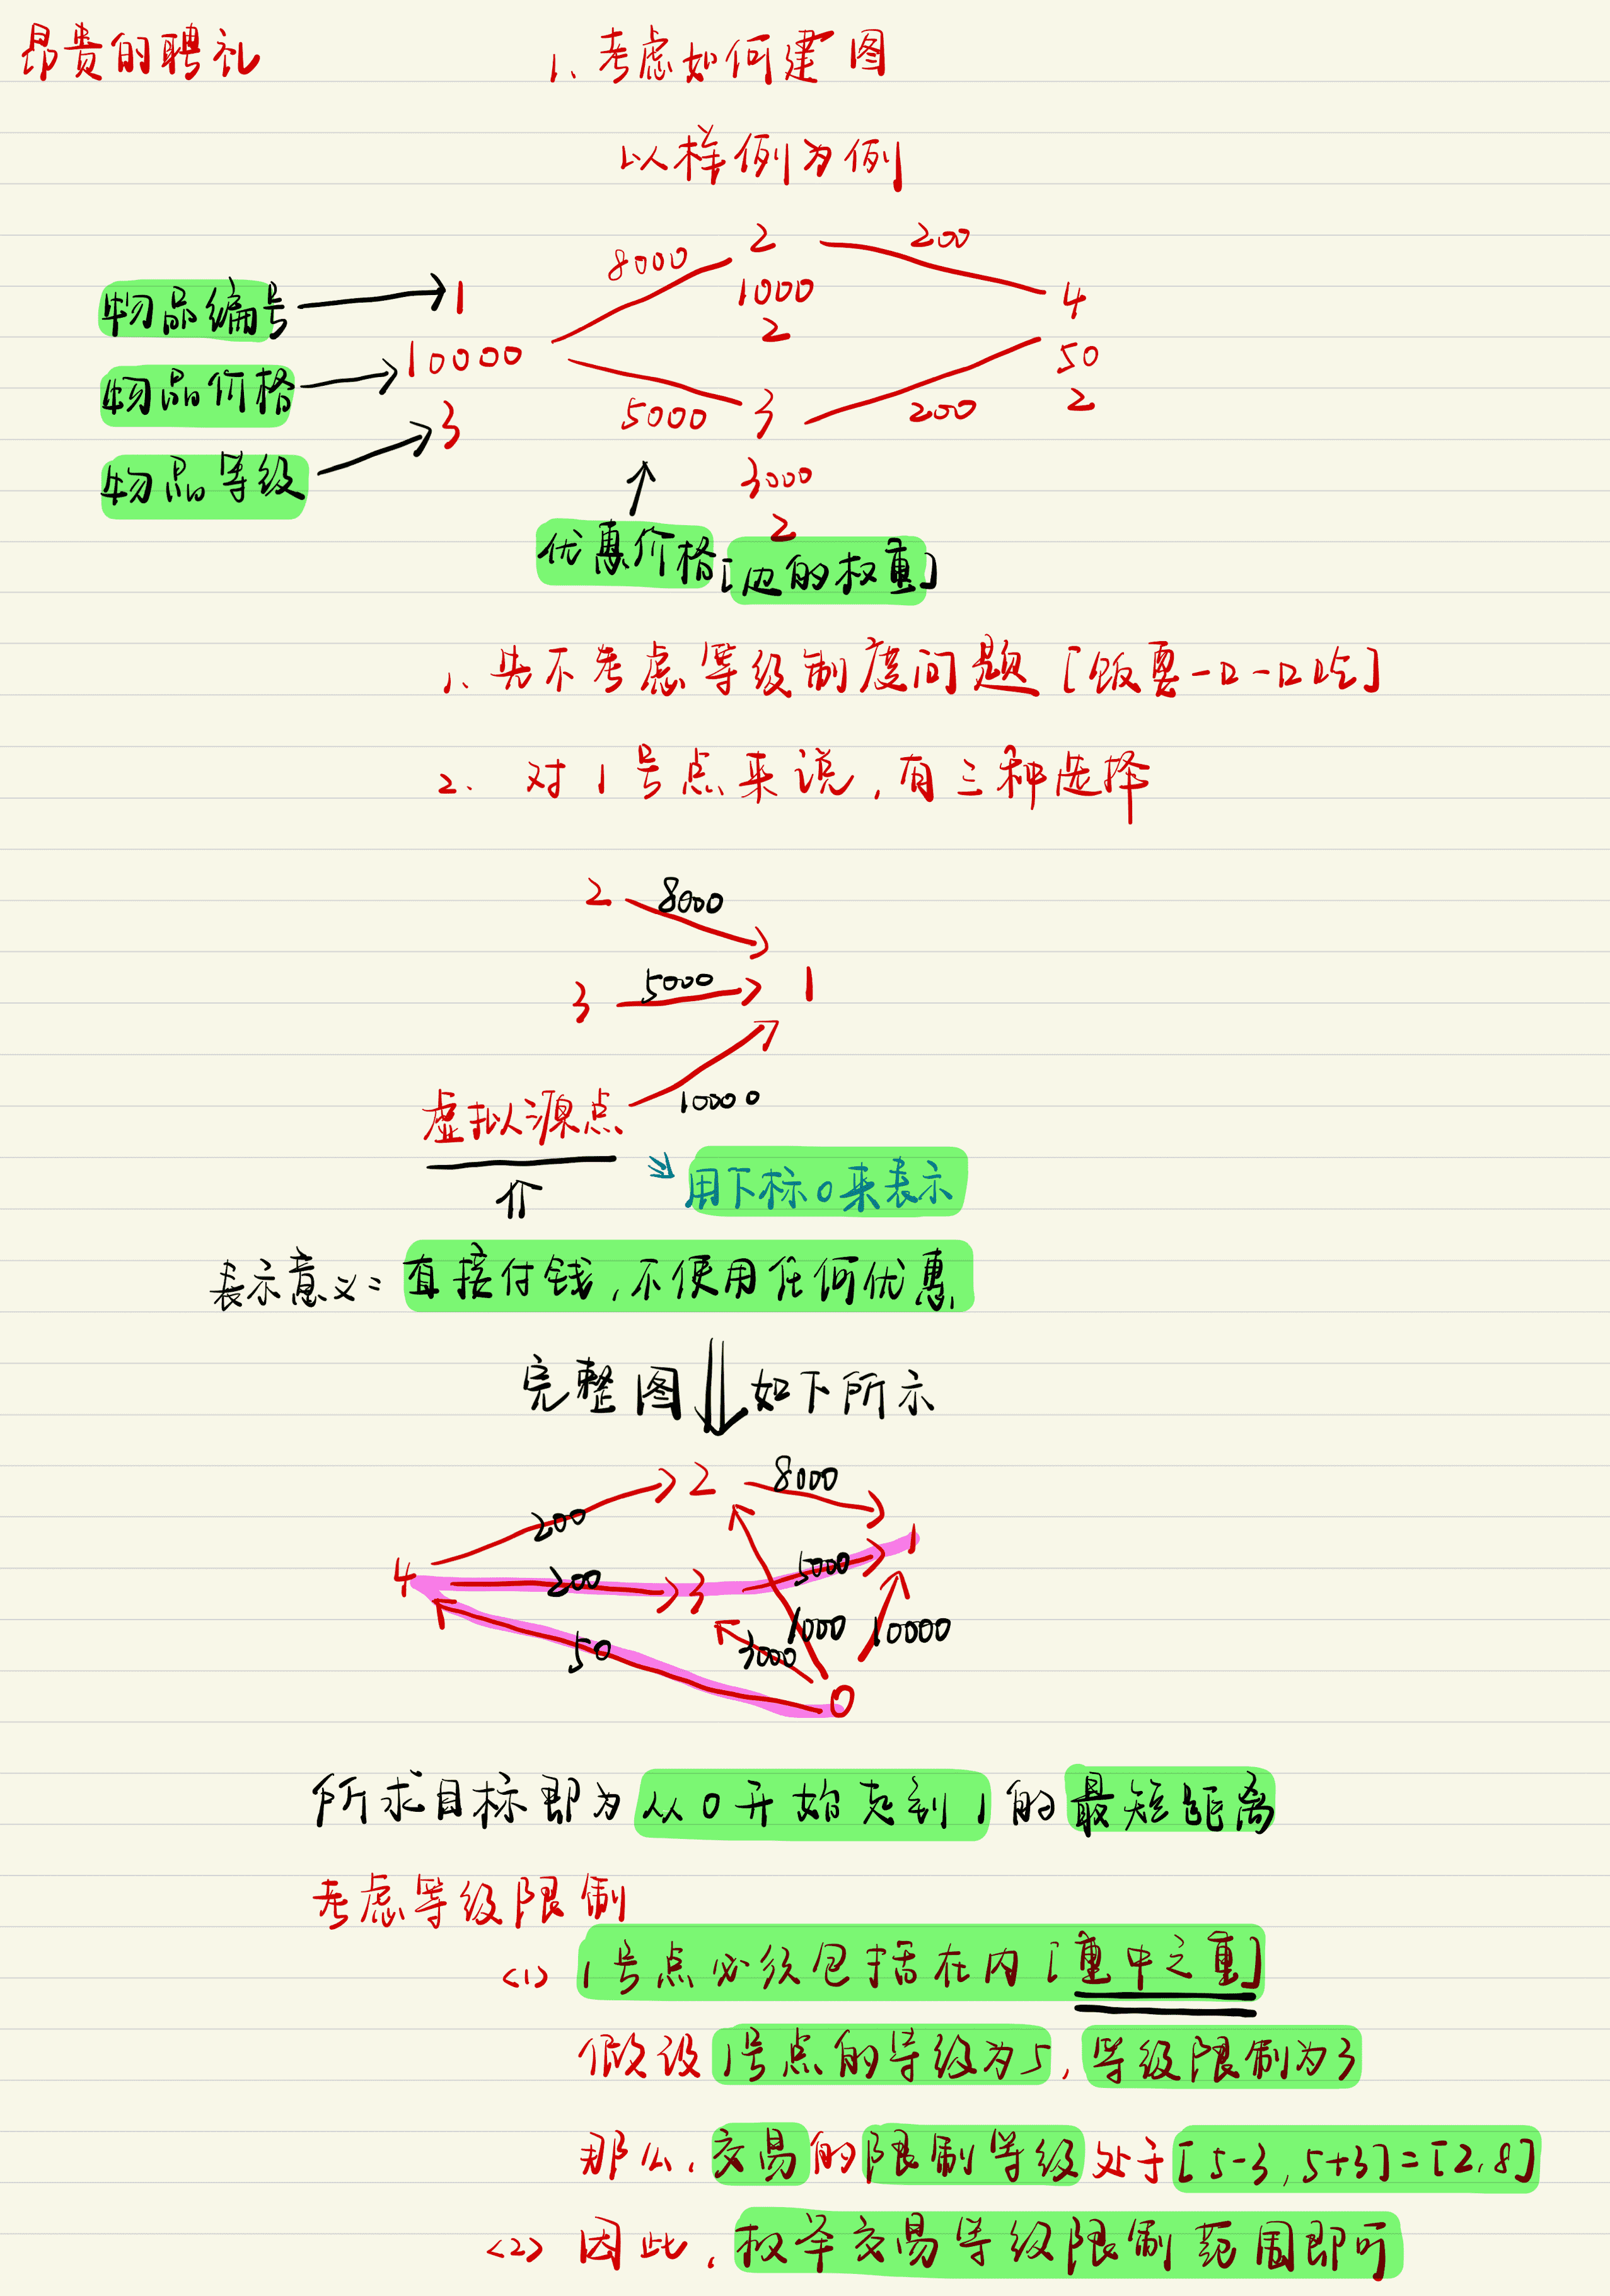 昂贵的聘礼
1、考虑如何建图
以样例为例
8000 2 200
物品编号 1 1000 4
2
物品价格 10000 50
5000 3 200 2
物品等级 3
3000
2
优惠价格[边的权重]
1、先不考虑等级制度问题[饭要一口一口吃]
2、对1号点来说,有三种选择
2 8000
3 5000 1
虚拟源点 10000
用下标0来表示
表示意义:直接付钱,不使用任何优惠
完整图 如下所示
2 8000
200 1
4 200 3 5000
50 3000 1000 10000
0
所求目标即为从0开始走到1的最短距离
考虑等级限制
<1> 1号点必须包括在内[重中之重]
假设1号点的等级为5,等级限制为3
那么,交易的限制等级处于[5-3,5+3]=[2,8]
<2> 因此,枚举交易等级限制范围即可